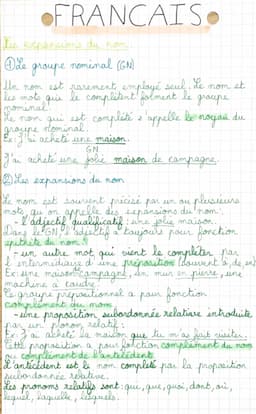 FRANCAIS
Les expansions du nom
① Le groupe nominal (GN)
Un nom est rarement employé seul. Le nom et
les mots qui le complètent forment le groupe
nominal.
Le nom qui est complété s'appelle le noyau du
groupe nominal.
Ex: J'ai acheté une maison.
GN
J'ai acheté une jolie maison de campagne.
② Les expansions du nom
Le nom est souvent précisé par un ou plusieurs
mots qu'on appelle des expansions du nom:
- l'adjectif qualificatif: une jolie maison.
Dans le GN, l'adjectif a toujours pour fonction
épithète du nom.
- un autre mot qui vient le compléter par
l'intermédiaire d'une préposition (souvent à, de, en)
Ex: une maison de campagne, un mur en pierre, une
machine à coudre.
Le groupe prépositionnel a pour fonction
complément du nom
- une proposition subordonnée relative introduite
par un pronom relatif.
Ex: J'ai acheté la maison que tu m'as fait visiter.
Cette proposition a pour fonction complément du nom
ou complément de l'antécédent.
L'antécédent est le nom complété par la proposition
subordonnée relative.
Les pronoms relatifs sont: que, qui, dont, où,
lequel, laquelle, lesquels.